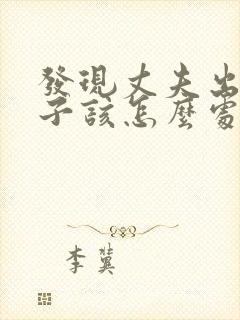 發現丈夫出
子該怎麼處
李冀